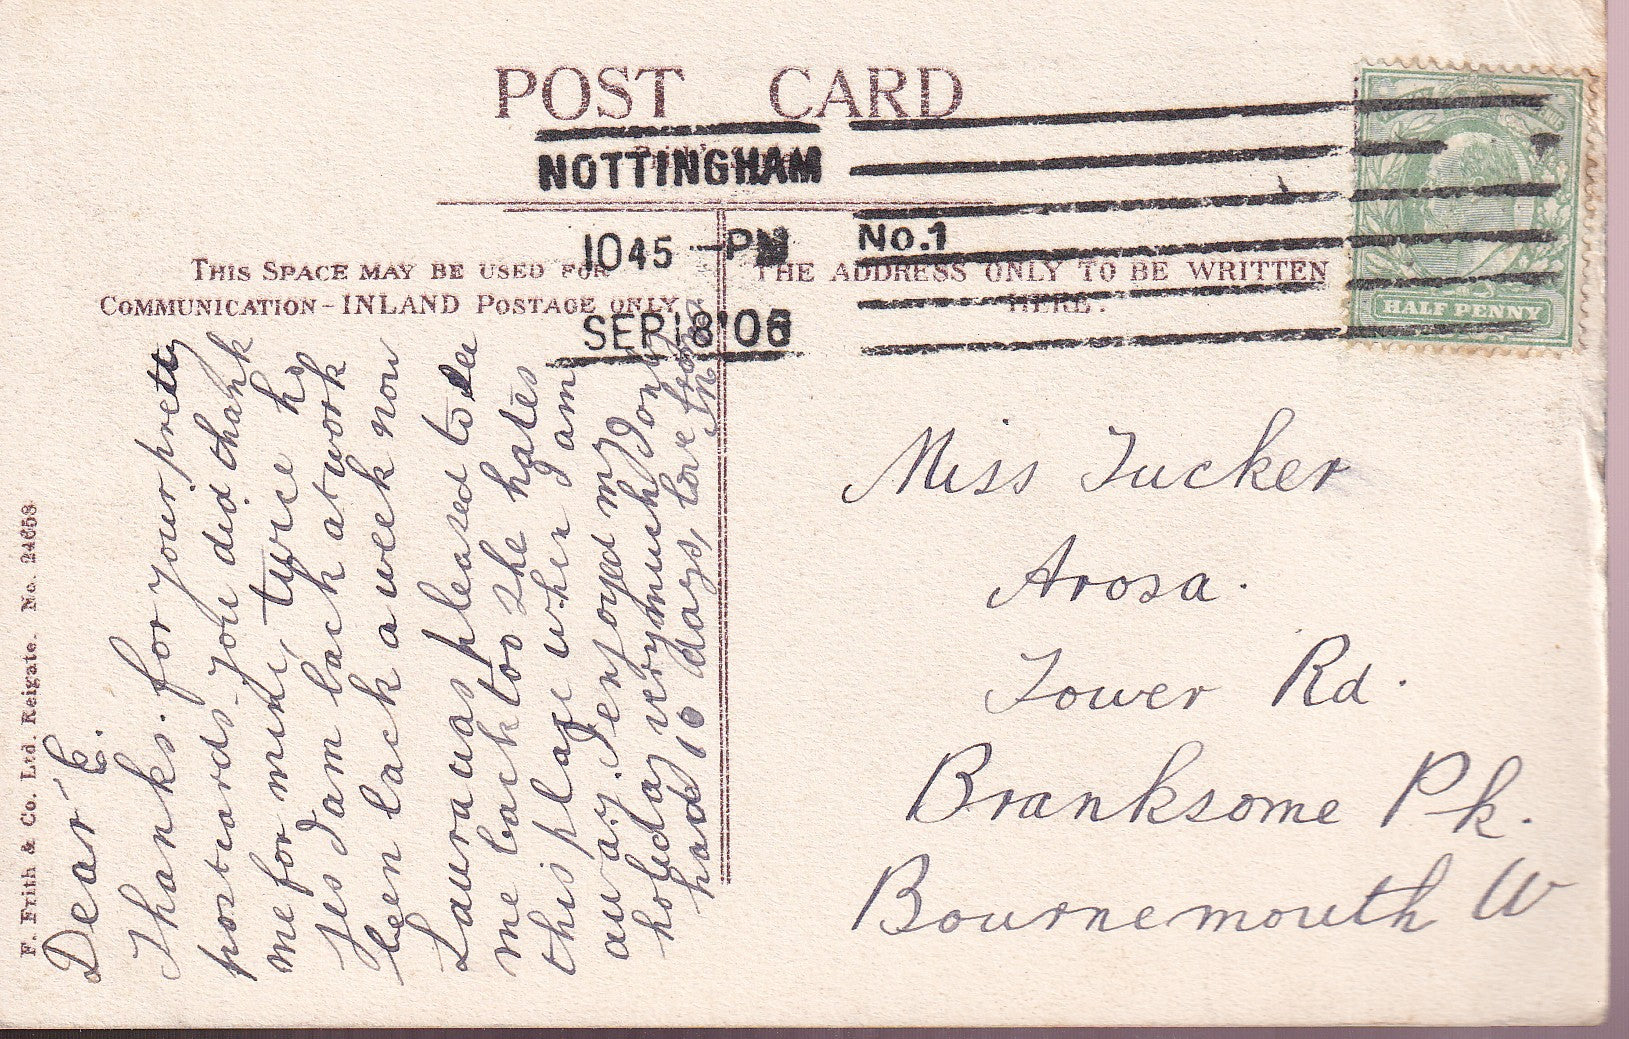 POST CARD
NOTTINGHAM
No.1
1045 - PM
SEP 18 '06
HALF PENNY
THIS SPACE MAY BE USED FOR
COMMUNICATION - INLAND POSTAGE ONLY
THE ADDRESS ONLY TO BE WRITTEN
HERE.
F. Frith & Co. Ltd. Reigate. No. 24658
Dear E.
Thanks. for your pretty
postcards you did thank
me for mine, twice
yes I am back at work
been back a week now
Laura was pleased to see
me back too she hates
this place when I am
away. I enjoyed my
holiday very much I only
had 10 days, love from
Miss Tucker
Arosa.
Tower Rd.
Branksome Pk.
Bournemouth W